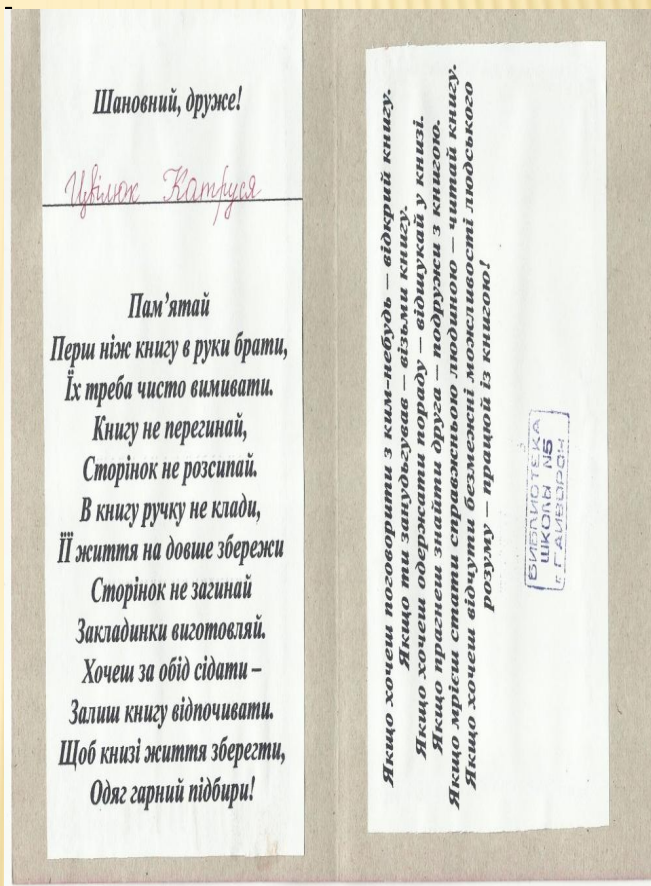 Шановний, друже!
Цвілюк Катруся
Пам'ятай
Перш ніж книгу в руки брати,
Їх треба чисто вимивати.
Книгу не перегинай,
Сторінок не розсипай.
В книгу ручку не клади,
ЇЇ життя на довше збережи
Сторінок не загинай
Закладинки виготовляй.
Хочеш за обід сідати –
Залиш книгу відпочивати.
Щоб книзі життя зберегти,
Одяг гарний підбири!
Якщо хочеш поговорити з ким-небудь – відкрий книгу.
Якщо ти занудьгував – візьми книгу.
Якщо хочеш одержати пораду – відшукай у книзі.
Якщо прагнеш знайти друга – подружи з книгою.
Якщо мрієш стати справжньою людиною – читай книгу.
Якщо хочеш відчути безмежні можливості людського
розуму – працюй із книгою!
БИБЛИОТЕКА
ШКОЛЫ №5
г. ГАЙВОРОН